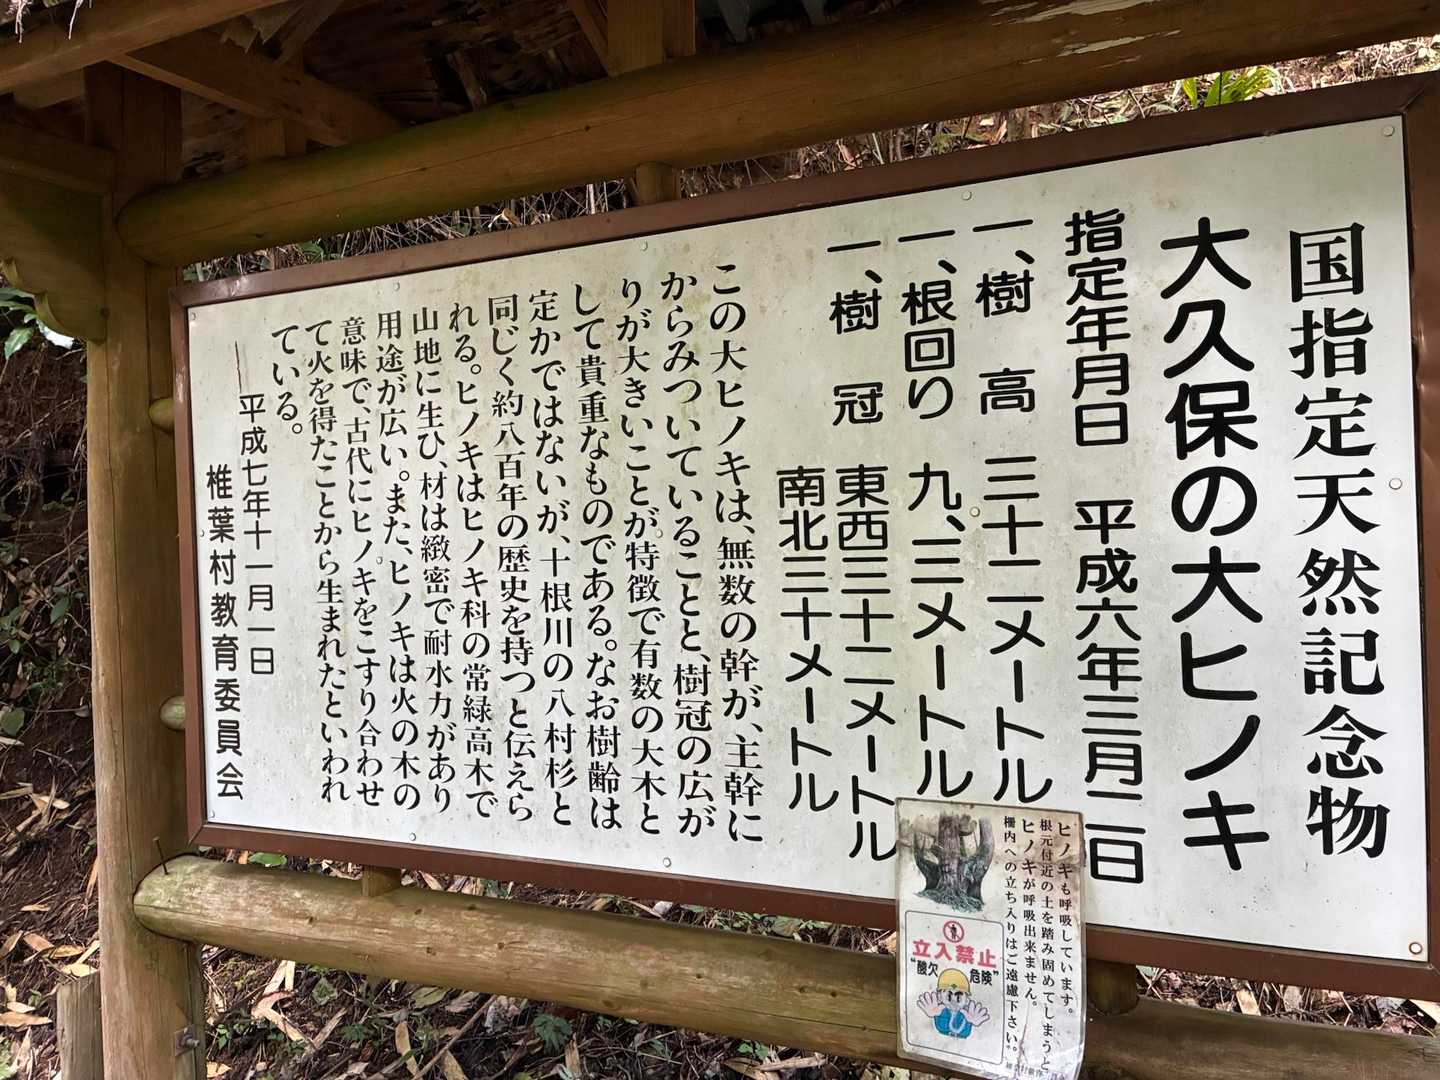 国指定天然記念物
大久保の大ヒノキ
指定年月日　平成六年三月二二日
一、樹　高　三十二メートル
一、根回り　九、三メートル
一、樹　冠　東西三十二メートル
南北三十メートル
この大ヒノキは、無数の幹が、主幹に
からみついていることと、樹冠の広が
りが大きいことが特徴で有数の大木と
して貴重なものである。なお樹齢は
定かではないが、十根川の八村杉と
同じく約八百年の歴史を持つと伝えら
れる。ヒノキはヒノキ科の常緑高木で
山地に生ひ、材は緻密で耐水力があり
用途が広い。また、ヒノキは火の木の
意味で、古代にヒノキをこすり合わせ
て火を得たことから生まれたといわれ
ている。
平成七年十一月一日
椎葉村教育委員会
ヒノキも呼吸しています。
根元付近の土を踏み固めてしまうと
ヒノキが呼吸出来ません。
柵内への立ち入りはご遠慮下さい。
立入禁止
“酸欠危険”